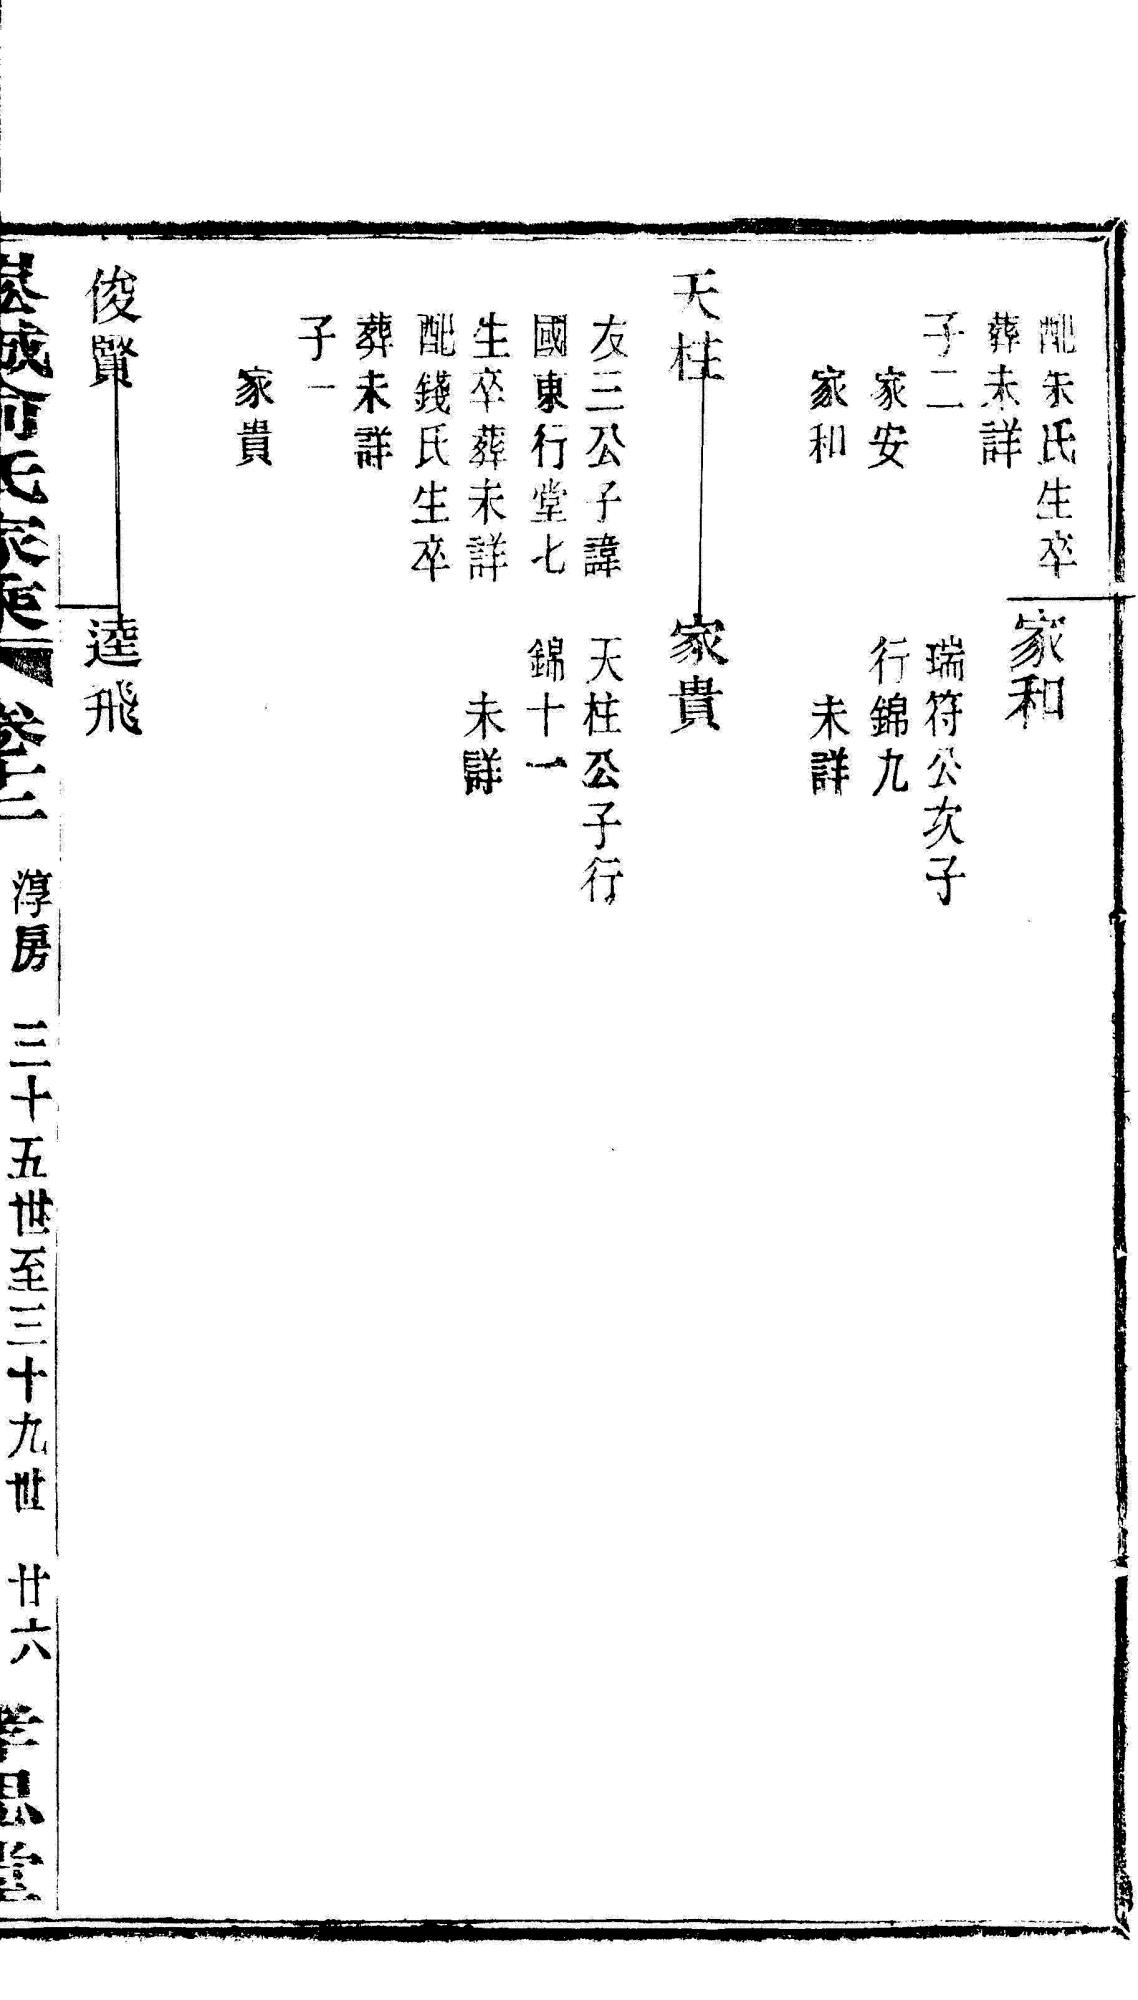 配朱氏生卒
葬未詳
子二
家安
家和
家和
瑞符公次子
行錦九
未詳
天柱
友三公子諱
國東行堂七
生卒葬未詳
配錢氏生卒
葬未詳
子一
家貴
家貴
天柱公子行
錦十一
未詳
俊賢
逵飛
崧城俞氏家乘 卷十二 淳房 三十五世至三十九世 廿六 孝思堂